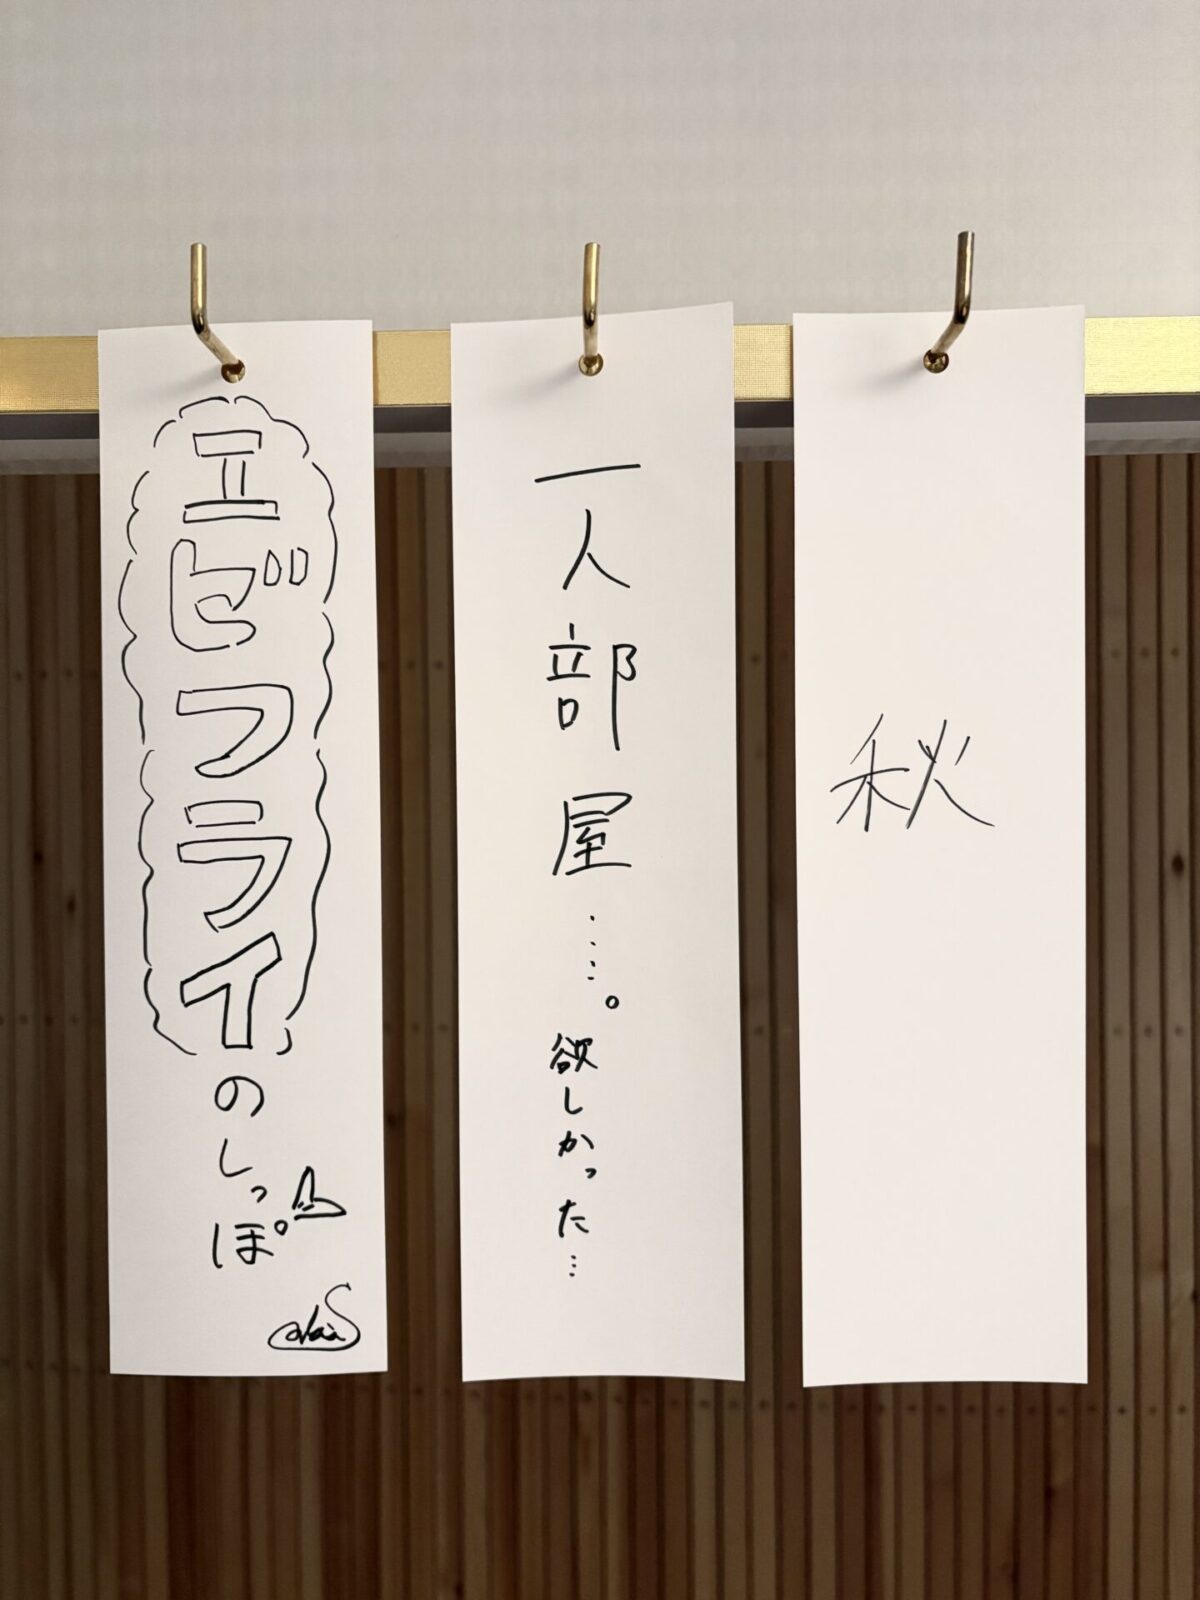 秋
一人部屋……。
欲しかった…
エビフライのしっぽ